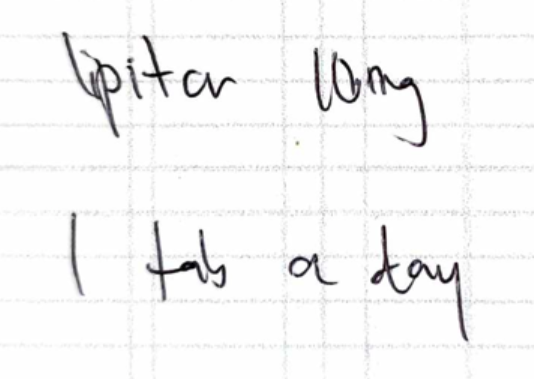 lipitor 10mg
1 tab a day